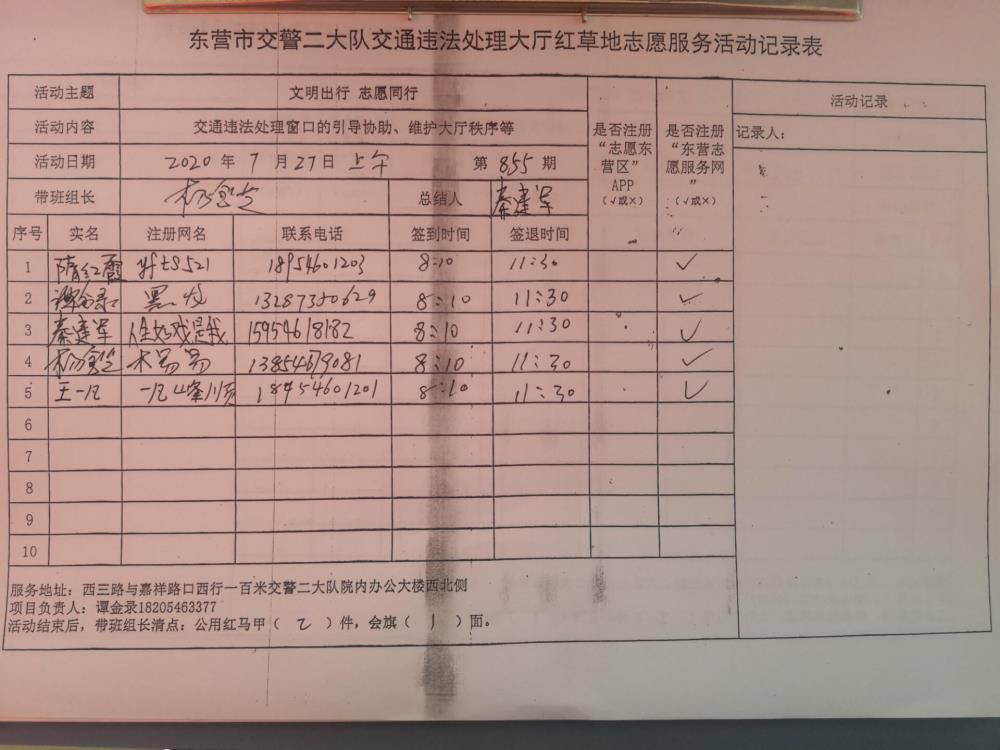 东营市交警二大队交通违法处理大厅红草地志愿服务活动记录表
活动主题 文明出行 志愿同行
活动内容 交通违法处理窗口的引导协助、维护大厅秩序等
活动日期 2020 年 7 月 27 日 上午 第 855 期
带班组长 总结人 秦建军
是否注册“志愿东营区”APP（√或×）
是否注册“东营志愿服务网”（√或×）
活动记录
记录人：
序号 实名 注册网名 联系电话 签到时间 签退时间
1 隋红霞 yfts521 18954601203 8:10 11:30 ✓
2 13287350629 8:10 11:30 ✓
3 秦建军 15954618182 8:10 11:30 ✓
4 木易 13854679081 8:10 11:30 ✓
5 王一凡 一凡峰顺 18954601201 8:10 11:30 ✓
6
7
8
9
10
服务地址：西三路与嘉祥路口西行一百米交警二大队院内办公大楼西北侧
项目负责人：谭金录18205463377
活动结束后，带班组长清点：公用红马甲（ 2 ）件，会旗（ 1 ）面。